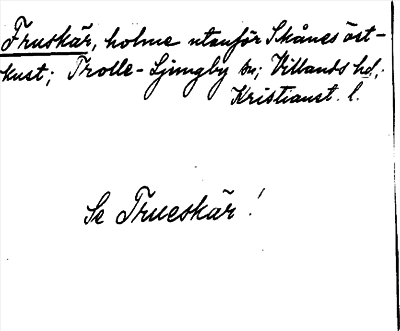 Fruskär, holme utanför Skånes öst-
kust; Trolle-Ljungby sn; Villands hd;
Kristianst. l.
Se Trueskär!